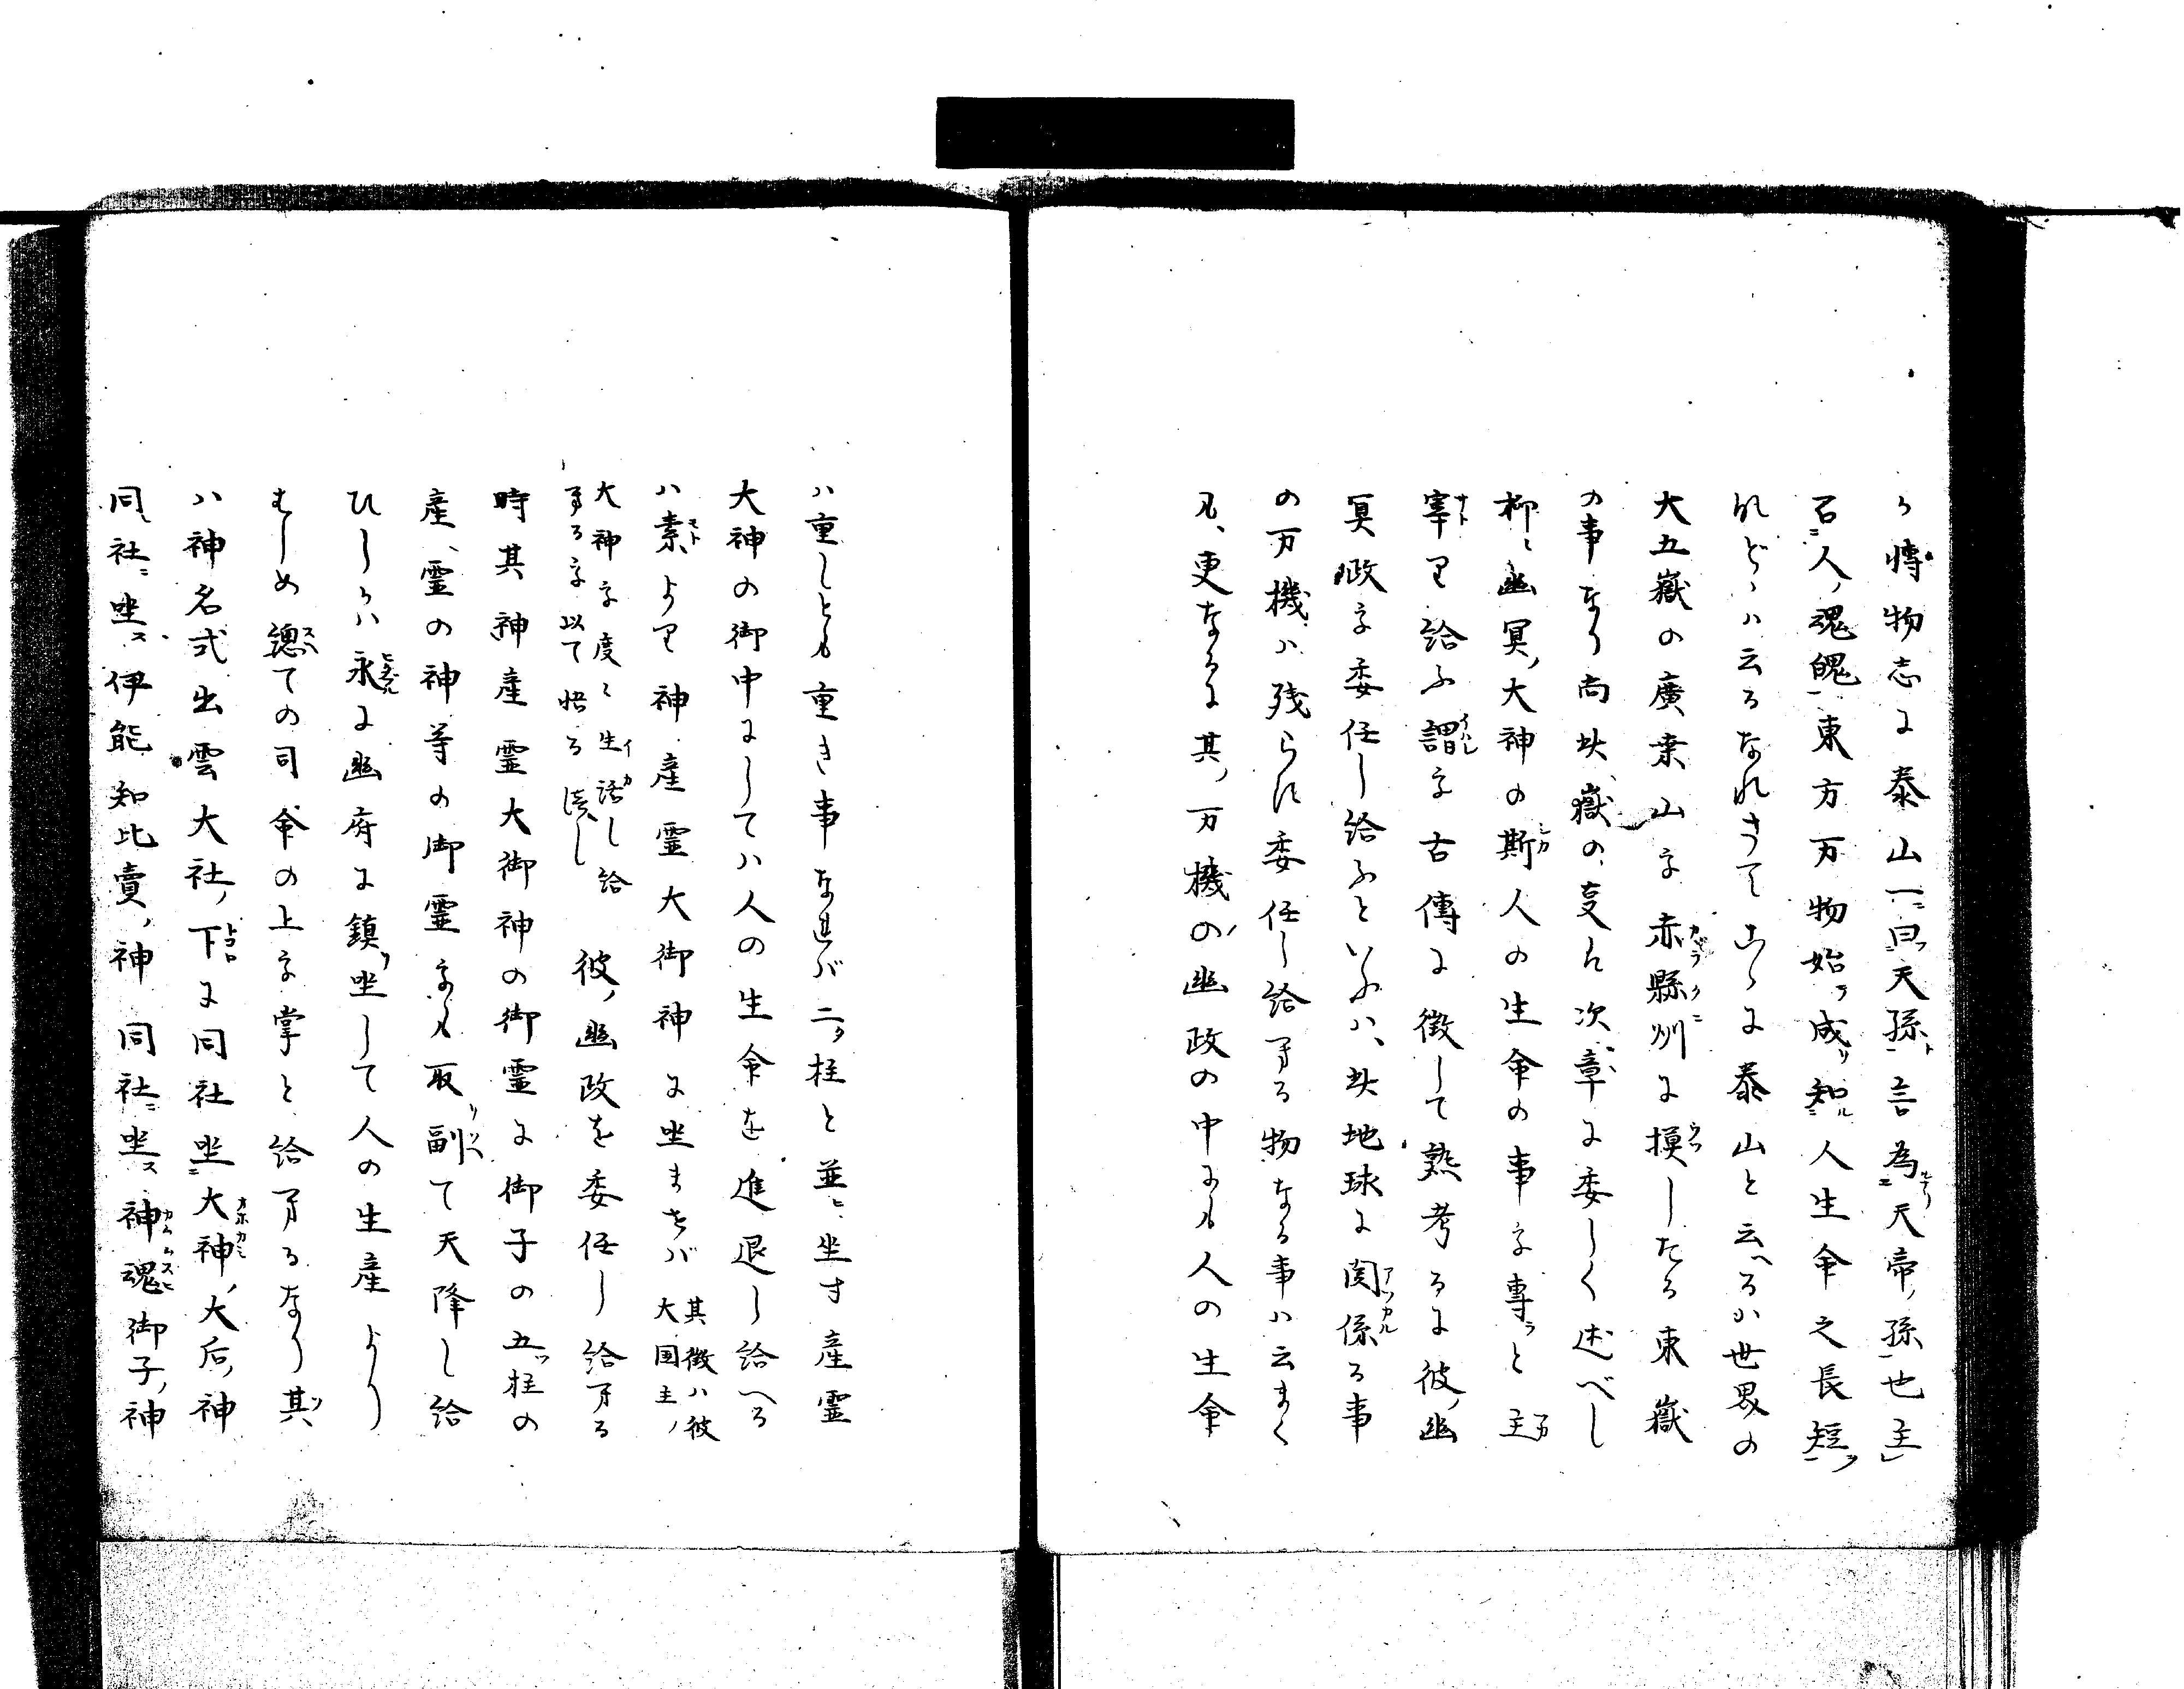 か博物志に泰山一ニ曰ッ天孫ト言為天帝ノ孫也主
召人ノ魂魄東方万物始テ成リ知ル人生命之長短ヲ
れどゝハ云るなれさてこゝに泰山と云るハ世界の
大五嶽の廣桒山を赤縣州に摸したる東嶽
の事なり尚此嶽の夏ハ次ノ章に委しく述べし
抑々幽冥ノ大神の斯人の生命の事を專ラと主
宰り給ふ謂を古傳に徴して熟考るに彼ノ幽
冥政を委任し給ふといふハ此地球に関係る事
の万機ハ残らず委任し給する物なる事ハ云まく
も更なるに其ノ万機の幽政の中にも人の生命
ハ重しとも重き事なれバ二タ柱と並ヒ坐す産霊
大神の御中にしてハ人の生命を進退し給へる
ハ素より神産霊大御神に坐ませバ 其徴ハ彼
大国主ノ
大神を度々生活し給
するを以て悟る溪し 彼ノ幽政を委任し給する
時其神産霊大御神の御霊に御子の五ッ柱の
産霊の神等の御霊をも取副て天降し給
ひしかハ永に幽府に鎮リ坐して人の生産より
むしめ總ての司命の上を掌と給するなり其
ハ神名式出雲大社ノ下に同社坐大神ノ大后ノ神
同社ニ坐ス伊能知比賣ノ神同社ニ坐ス神魂御子ノ神